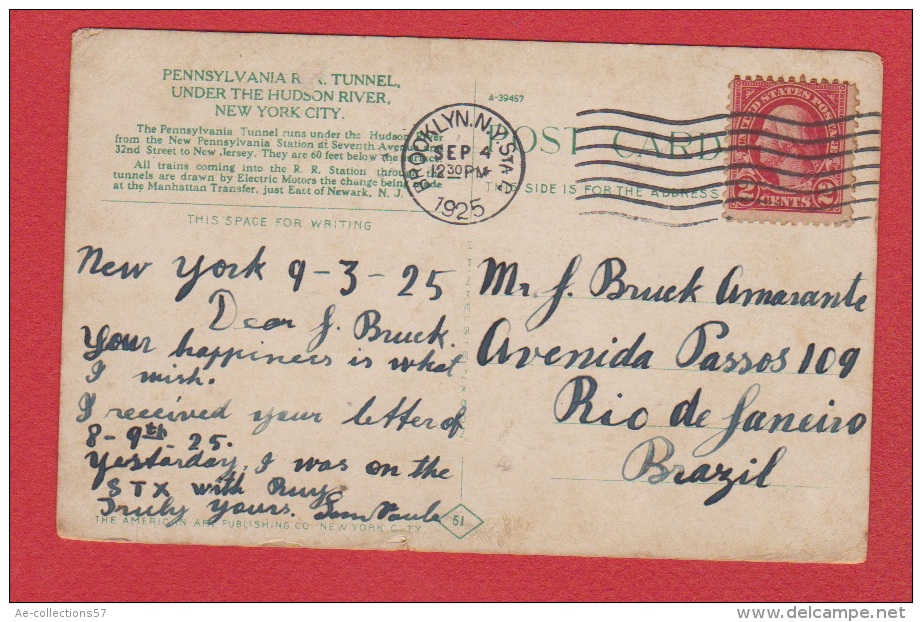 PENNSYLVANIA R. R. TUNNEL,
UNDER THE HUDSON RIVER,
NEW YORK CITY.
The Pennsylvania Tunnel runs under the Hudson River
from the New Pennsylvania Station at Seventh Avenue and
32nd Street to New Jersey. They are 60 feet below the surface
All trains coming into the R. R. Station through the
tunnels are drawn by Electric Motors the change being made
at the Manhattan Transfer, just East of Newark, N. J.
THIS SPACE FOR WRITING
New York 9-3-25
Dear J. Bruck.
Your happiness is what
I wish.
I received your letter of
8-9th 25.
Yesterday, I was on the
STX with Ruy
Truly yours.
THE AMERICAN ART PUBLISHING CO. NEW YORK CITY
51
A-39467
POST CARD
THIS SIDE IS FOR THE ADDRESS
BROOKLYN, N.Y. STA. A
SEP 4
12 30 PM
1925
UNITED STATES POSTAGE
2 CENTS 2
Mr. J. Bruck Amarante
Avenida Passos 109
Rio de Janeiro
Brazil
Ae-collections57
www.delcampe.net